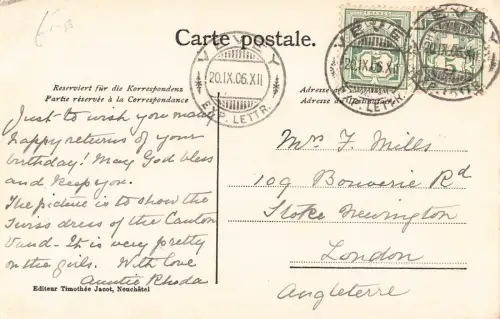 Carte postale.
VEVEY
20.IX.06.XII
EXP. LETTR.
VEVEY
20.IX.06.XII
EXP. LETTR.
VEVEY
20.IX.06.XII
EXP. LETTR.
Reserviert für die Korrespondenz
Partie réservée à la Correspondance
Adresse
Adresse du
Just to wish you many
happy returns of your
birthday! May God bless
and keep you.
The picture is to show the
Swiss dress of the Canton
Vaud. It is very pretty
on the girls. With love
Auntie Rhoda
Mrs F. Mills
109 Bouverie Rd
Stoke Newington
London
Angleterre
Editeur Timothée Jacot, Neuchâtel